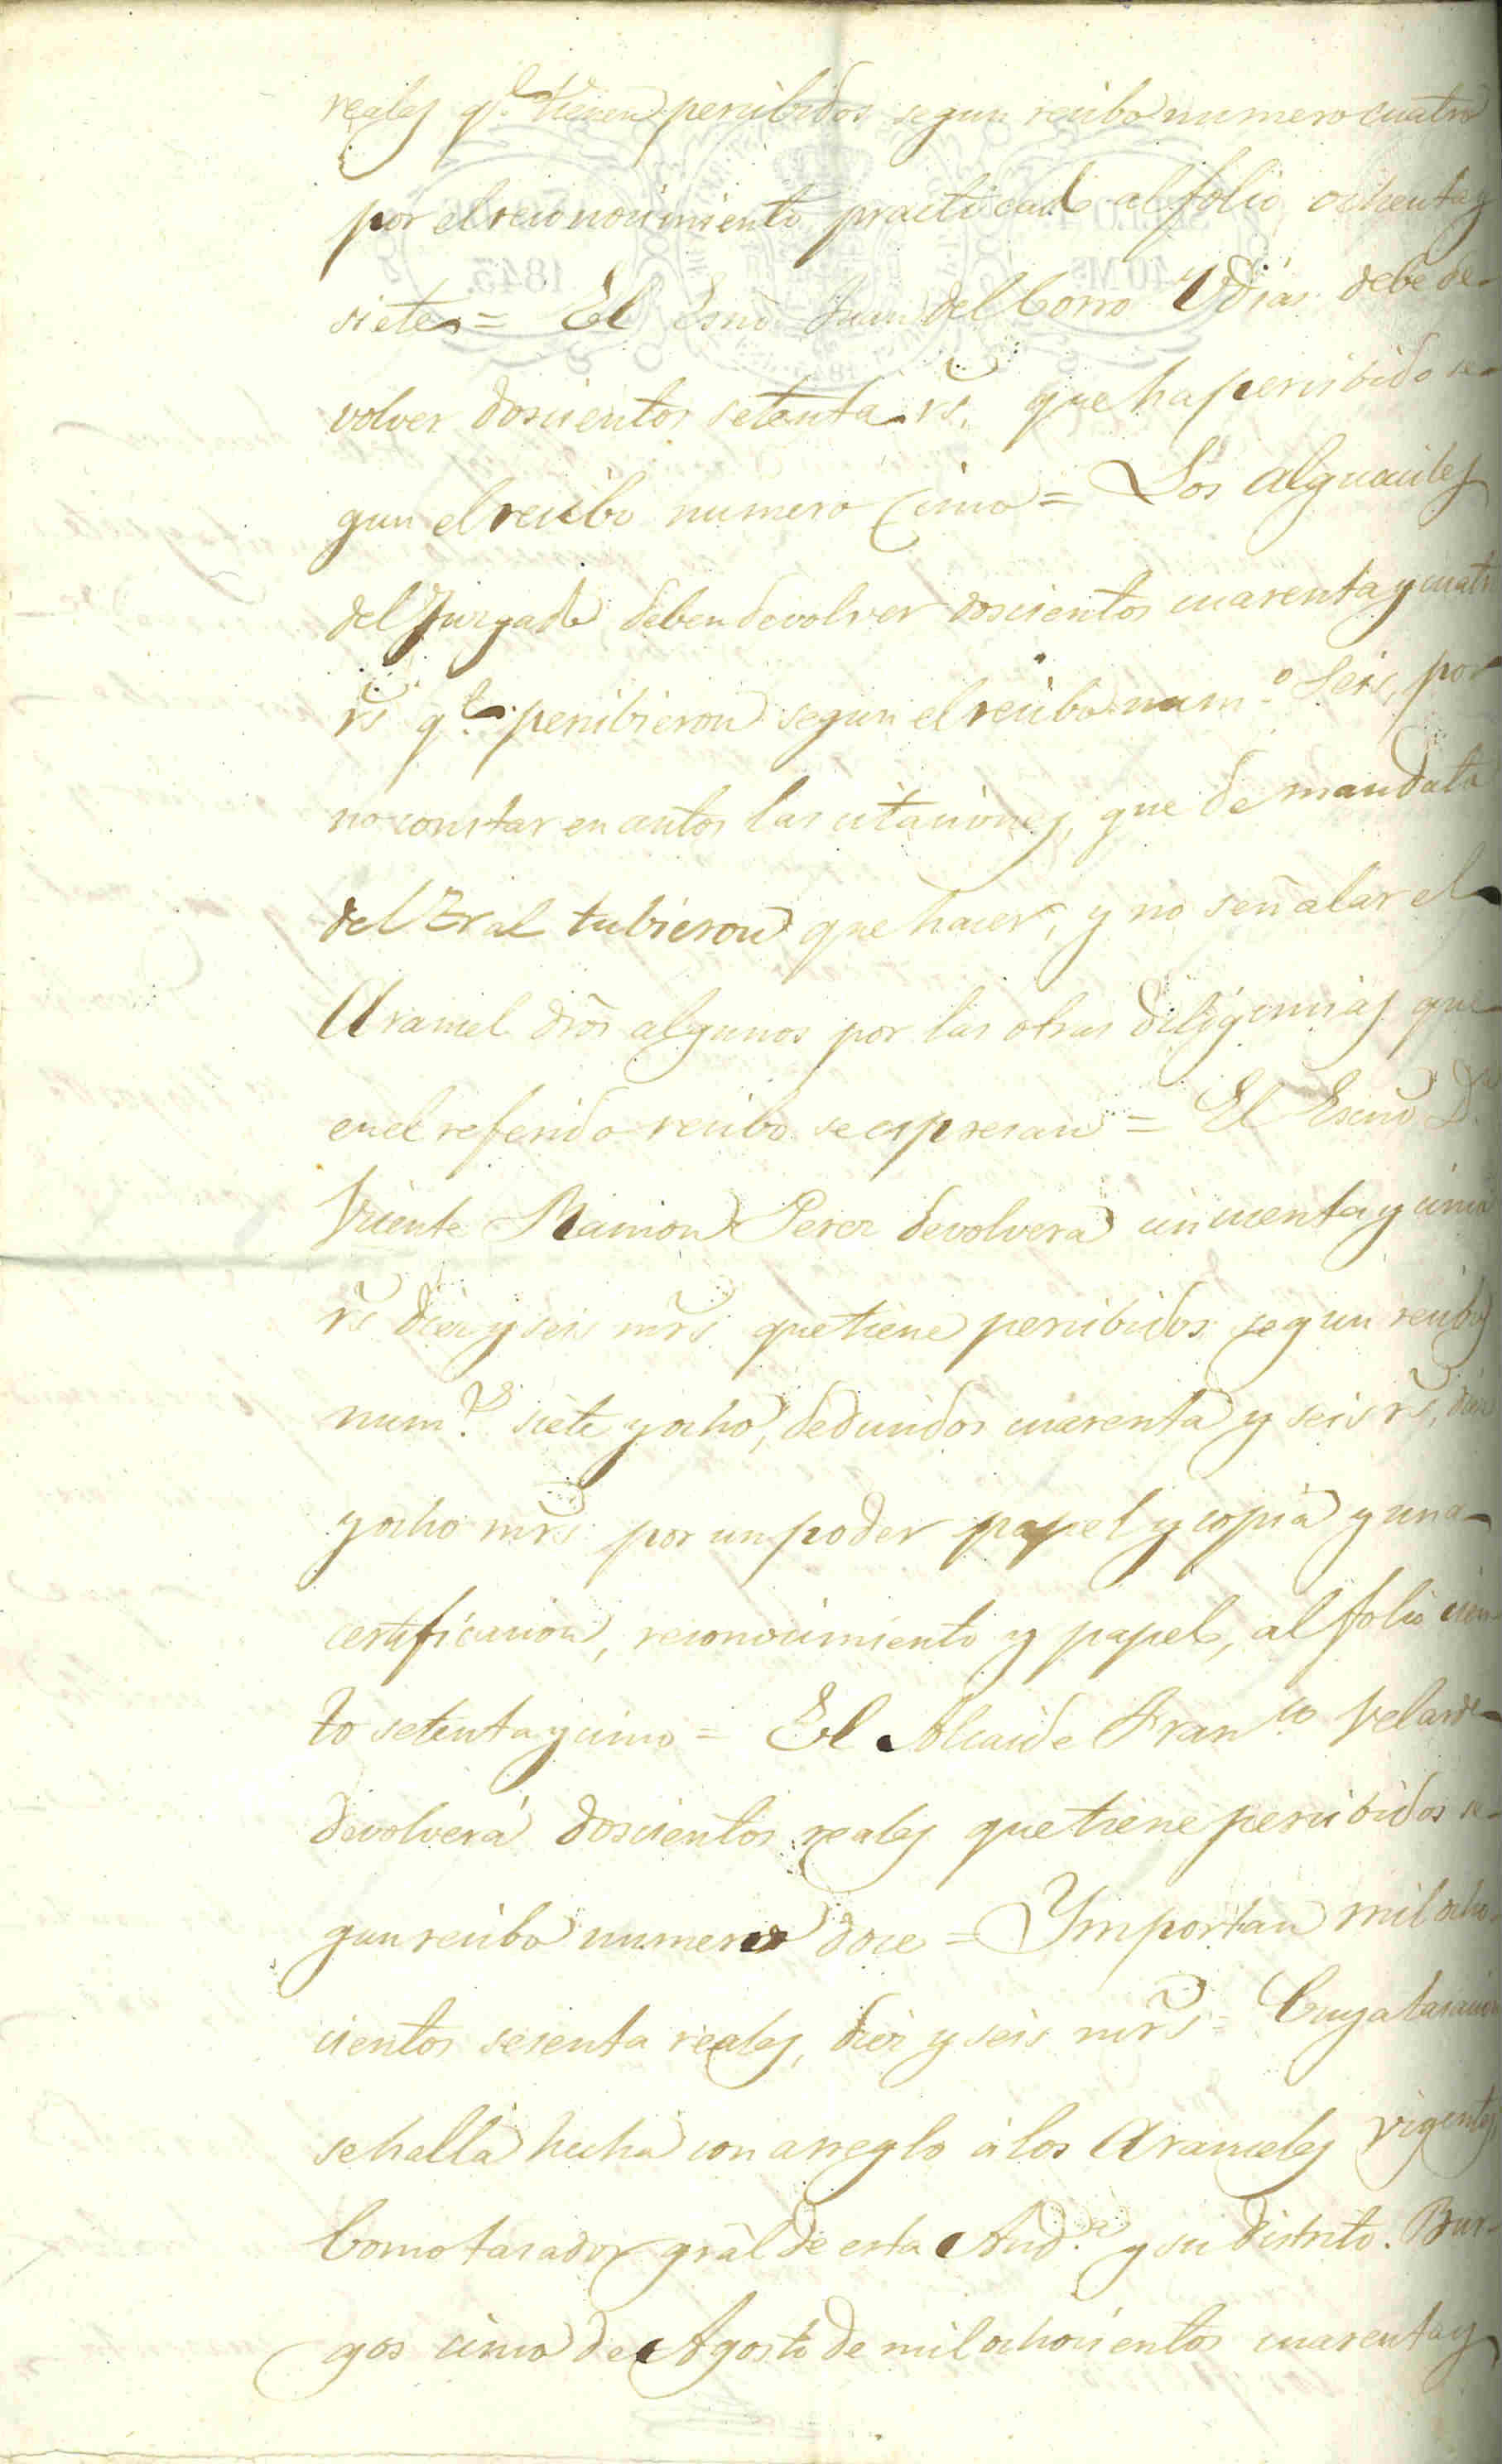 reales q.e tienen percibidos segun recibo numero cuatro
por el reconocimiento practicado al folio ochenta y
siete = El Esno Juan del Corro Udias debe de-
volver doscientos setenta rs. que ha percibido se-
gun el recibo numero cinco = Los alguaciles
del Juzgado deben devolver doscientos cuarenta y cuatro
rs q.e percibieron segun el recibo num.o seis, por
no constar en autos las citaciones, que de mandato
del Tral tubieron que hacer, y no señalar el
Arancel dros algunos por las otras diligencias que
en el referido recibo se espresan = El Escno D.n
Vicente Ramon Perez devolvera cincuenta y cinco
rs diez y seis mrs que tiene percibidos segun recibos
num.s siete y ocho, deducidos cuarenta y seis rs, diez
y ocho mrs por un poder papel y copia y una
certificacion, reconocimiento y papel, al folio cien-
to setenta y cinco = El Alcaide Fran.co Velarde
devolverá doscientos reales que tiene percibidos se-
gun recibo numero doce = Ymportan mil ocho-
cientos sesenta reales, diez y seis mrs = Cuya tasacion
se halla hecha con arreglo á los Aranceles vigentes,
Como tasador gral de esta Aud.a y su distrito. Bur-
gos cinco de Agosto de mil ochocientos cuarenta y